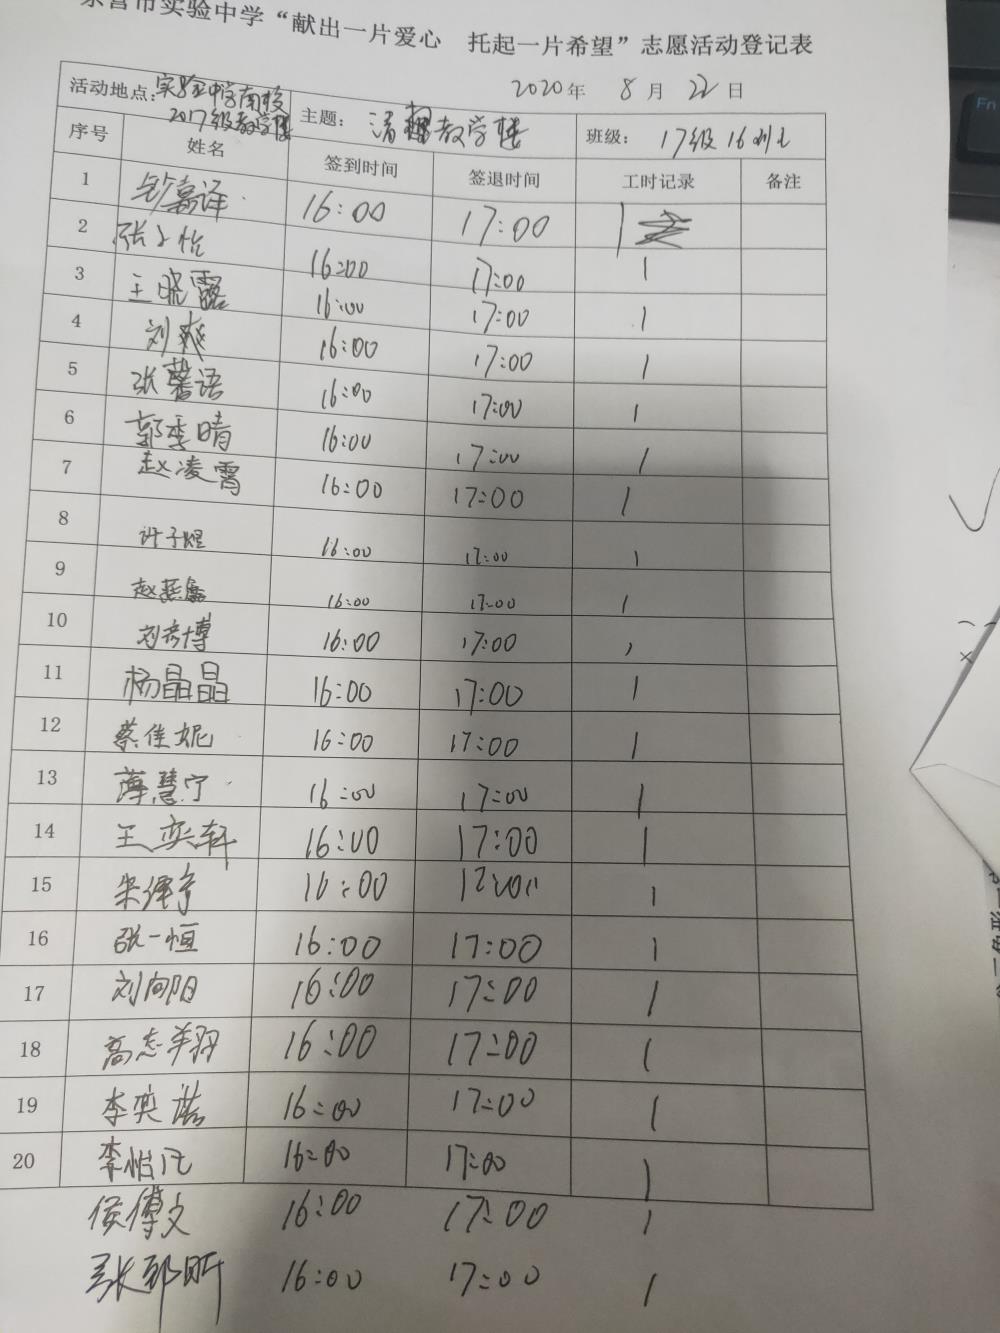 东营市实验中学“献出一片爱心 托起一片希望”志愿活动登记表
2020年 8月 22日
活动地点：实验中学南校2017级教学楼 主题：清扫教学楼 班级：17级16班
序号 姓名 签到时间 签退时间 工时记录 备注
1 嘉译 16:00 17:00 1
2 张子怡 16:00 17:00 1
3 王晓露 16:00 17:00 1
4 刘爽 16:00 17:00 1
5 张馨语 16:00 17:00 1
6 郭季晴 16:00 17:00 1
7 赵凌霄 16:00 17:00 1
8 许子煜 16:00 17:00 1
9 赵燕 16:00 17:00 1
10 刘彦博 16:00 17:00
11 杨晶晶 16:00 17:00 1
12 蔡佳妮 16:00 17:00 1
13 薄慧宁 16:00 17:00 1
14 王奕轩 16:00 17:00 1
15 16:00 17:00 1
16 张一恒 16:00 17:00 1
17 刘向阳 16:00 17:00 1
18 高志翔 16:00 17:00 1
19 李奕诺 16:00 17:00 1
20 李怡凡 16:00 17:00 1
侯傅文 16:00 17:00 1
张郅昕 16:00 17:00 1
Fn